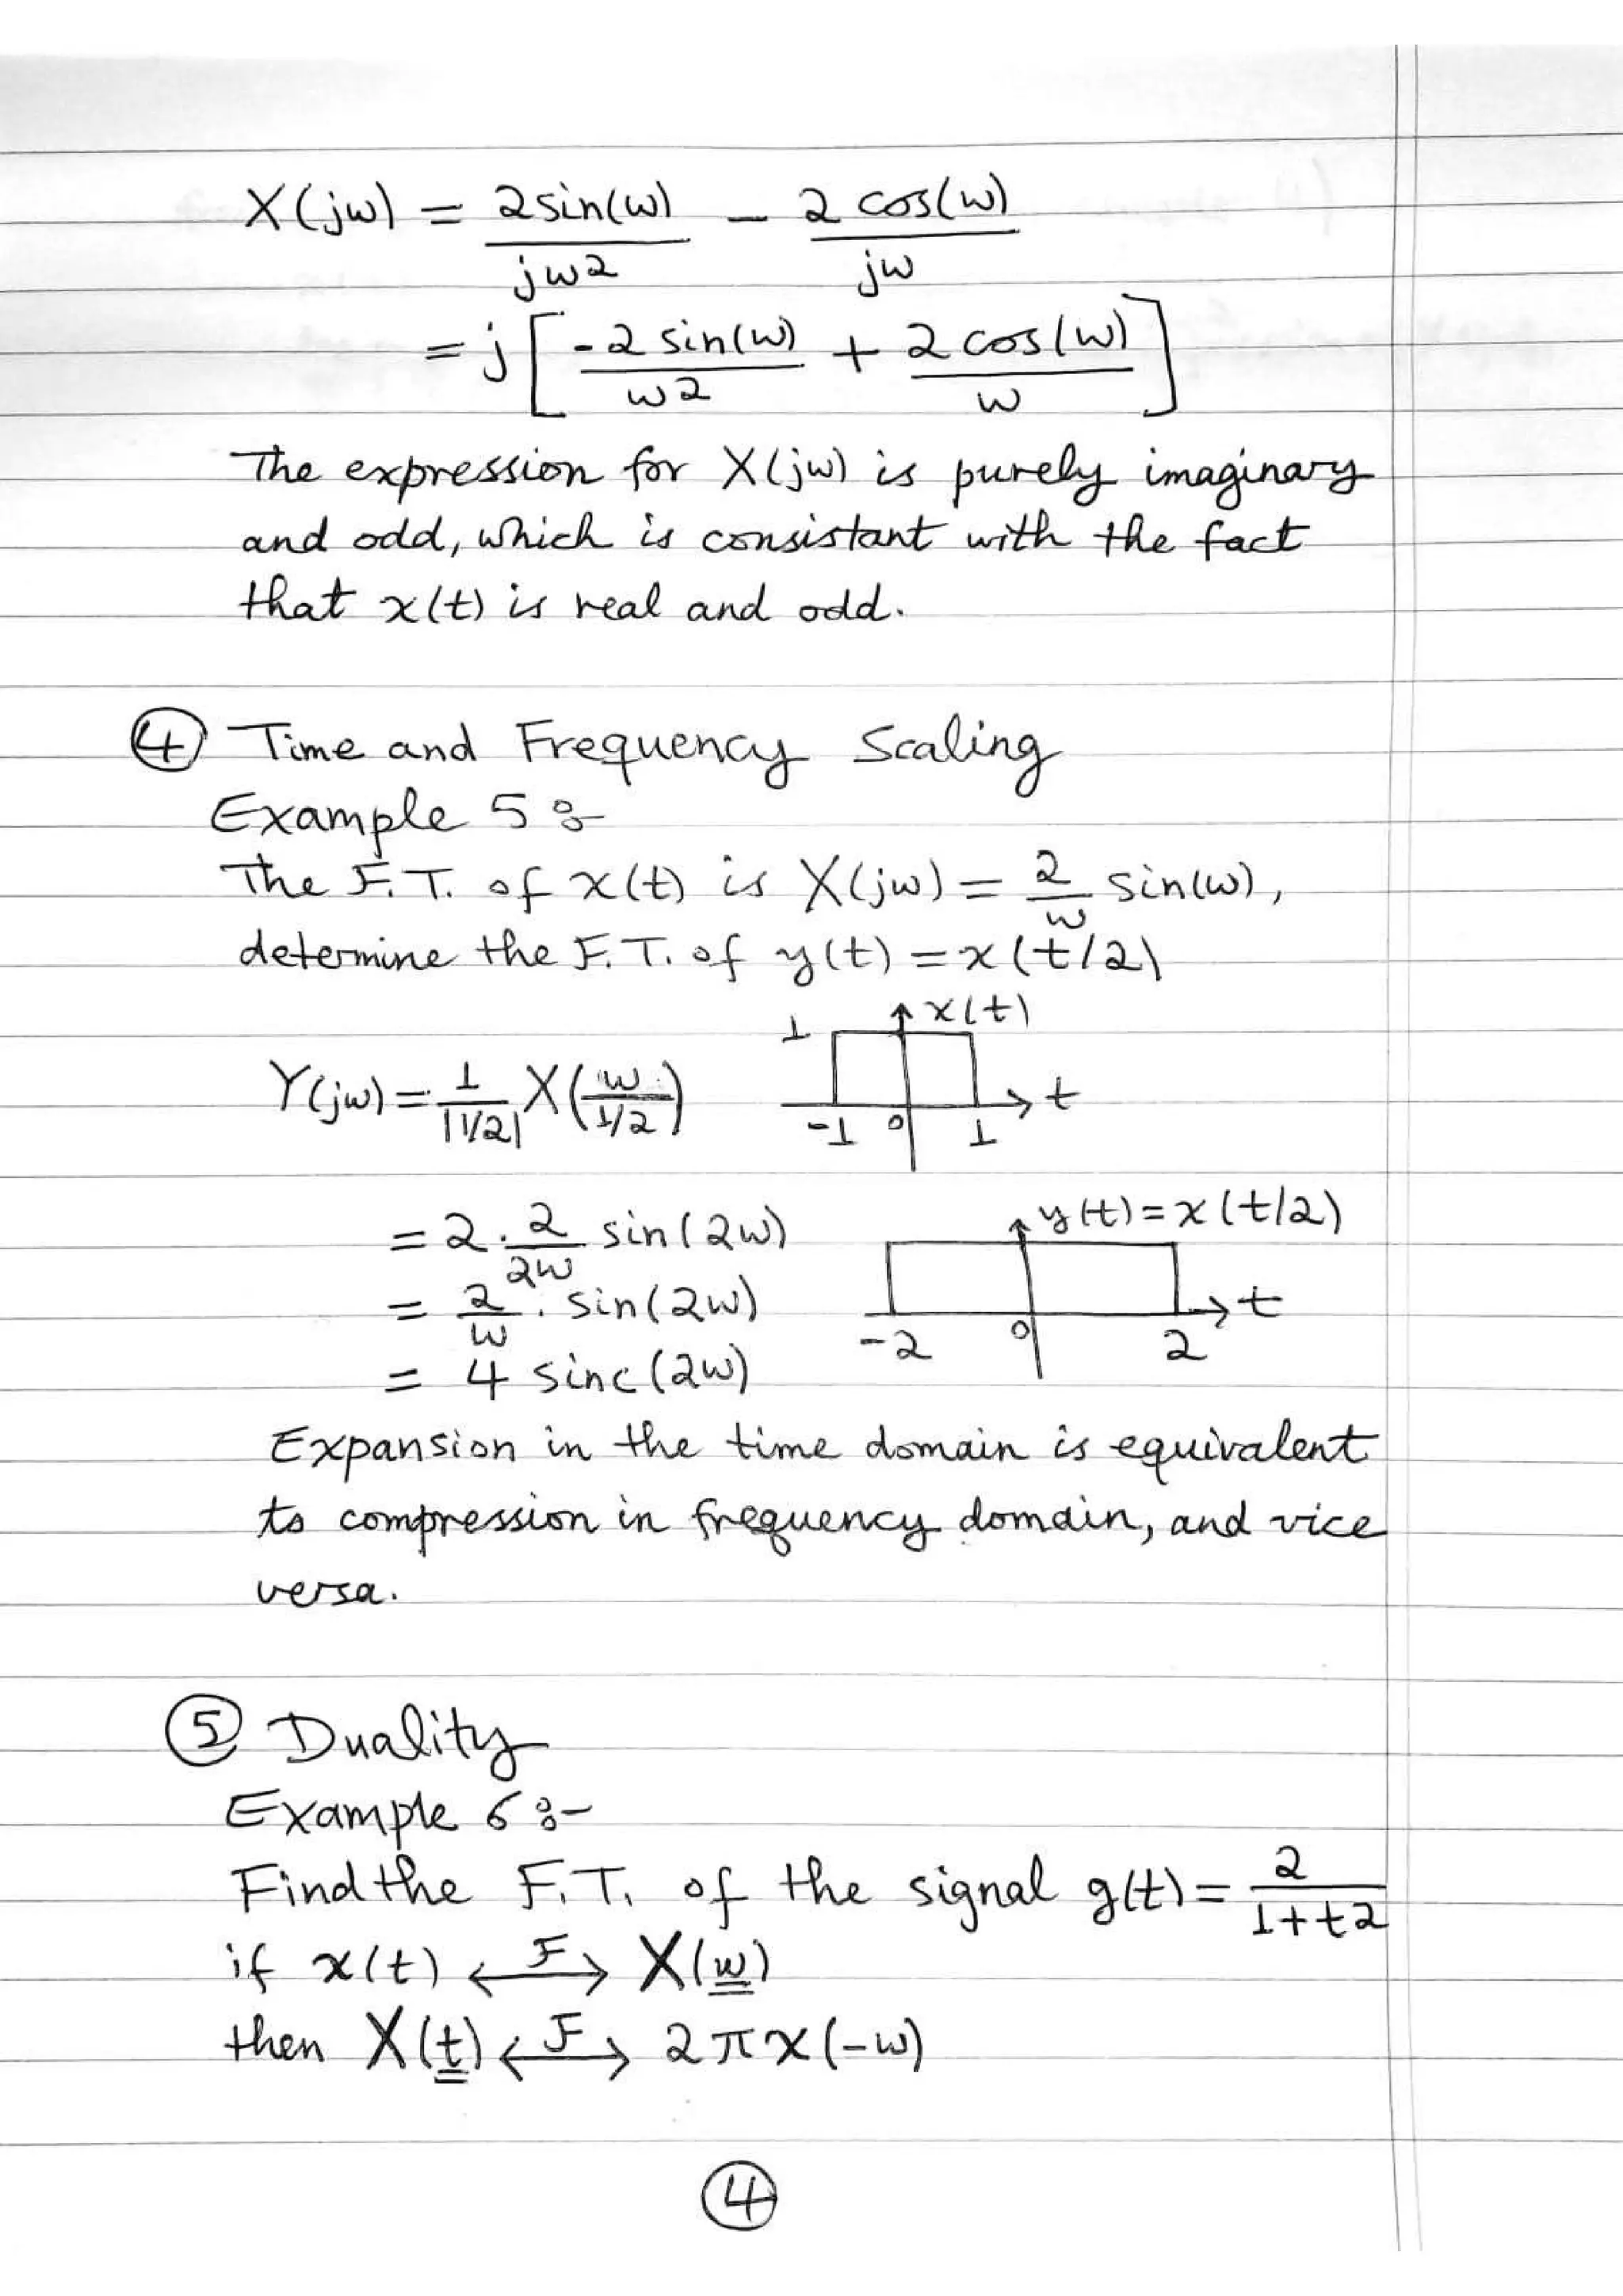 X(jw) = 2sin(w)/jw2 - 2 cos(w)/jw
= j[-2 sin(w)/w2 + 2 cos(w)/w]
The expression for X(jw) is purely imaginary
and odd, which is consistant with the fact
that x(t) is real and odd.
④ Time and Frequency Scaling
Example 5:-
The F.T. of x(t) is X(jw) = 2/w sin(w),
determine the F.T. of y(t) = x(t/2)
x(t)
1
Y(jw) = 1/|1/2| X(w/1/2)
t
-1 0 1
y(t) = x(t/2)
= 2 . 2/2w sin(2w)
= 2/w . sin(2w)
t
-2 0 2
= 4 sinc(2w)
Expansion in the time domain is equivalent
to compression in frequency domain, and vice
versa.
⑤ Duality
Example 6:-
Find the F.T. of the signal g(t) = 2/1+t2
if x(t) <-F-> X(w)
then X(t) <-F-> 2πx(-w)
④